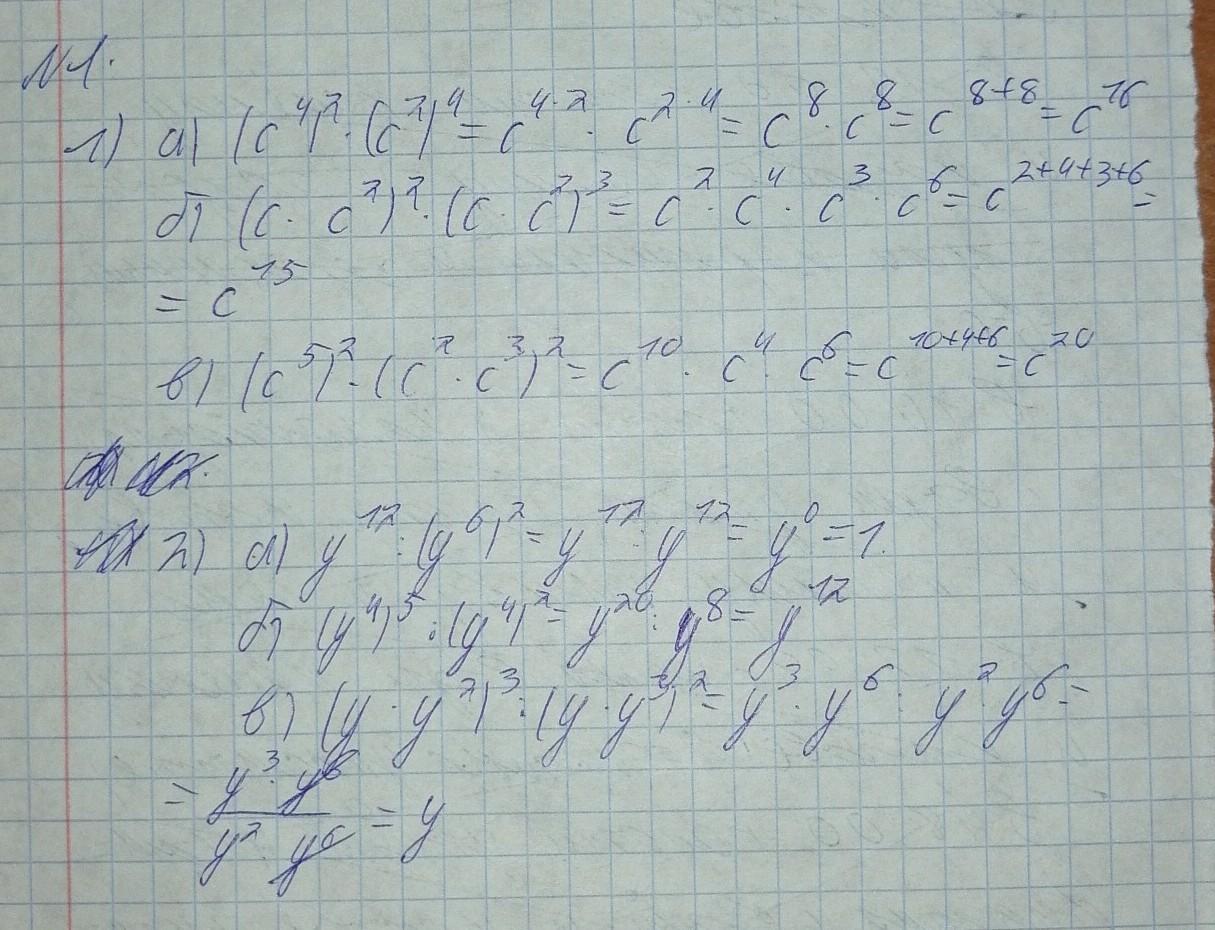 №1.
1) а) (c⁴)²·(c²)⁴=c⁴·²·c²·⁴=c⁸·c⁸=c⁸⁺⁸=c¹⁶
б) (c·c²)²·(c·c²)³=c²·c⁴·c³·c⁶=c²⁺⁴⁺³⁺⁶=
=c¹⁵
в) (c⁵)²·(c²·c³)²=c¹⁰·c⁴·c⁶=c¹⁰⁺⁴⁺⁶=c²⁰
2) а) y¹²:(y⁶)²=y¹²:y¹²=y⁰=1.
б) (y⁴)⁵:(y⁴)²=y²⁰:y⁸=y¹²
в) (y·y²)³:(y·y³)²=y³·y⁶:y²·y⁶=
= y³·y⁶ / y²·y⁶ = y